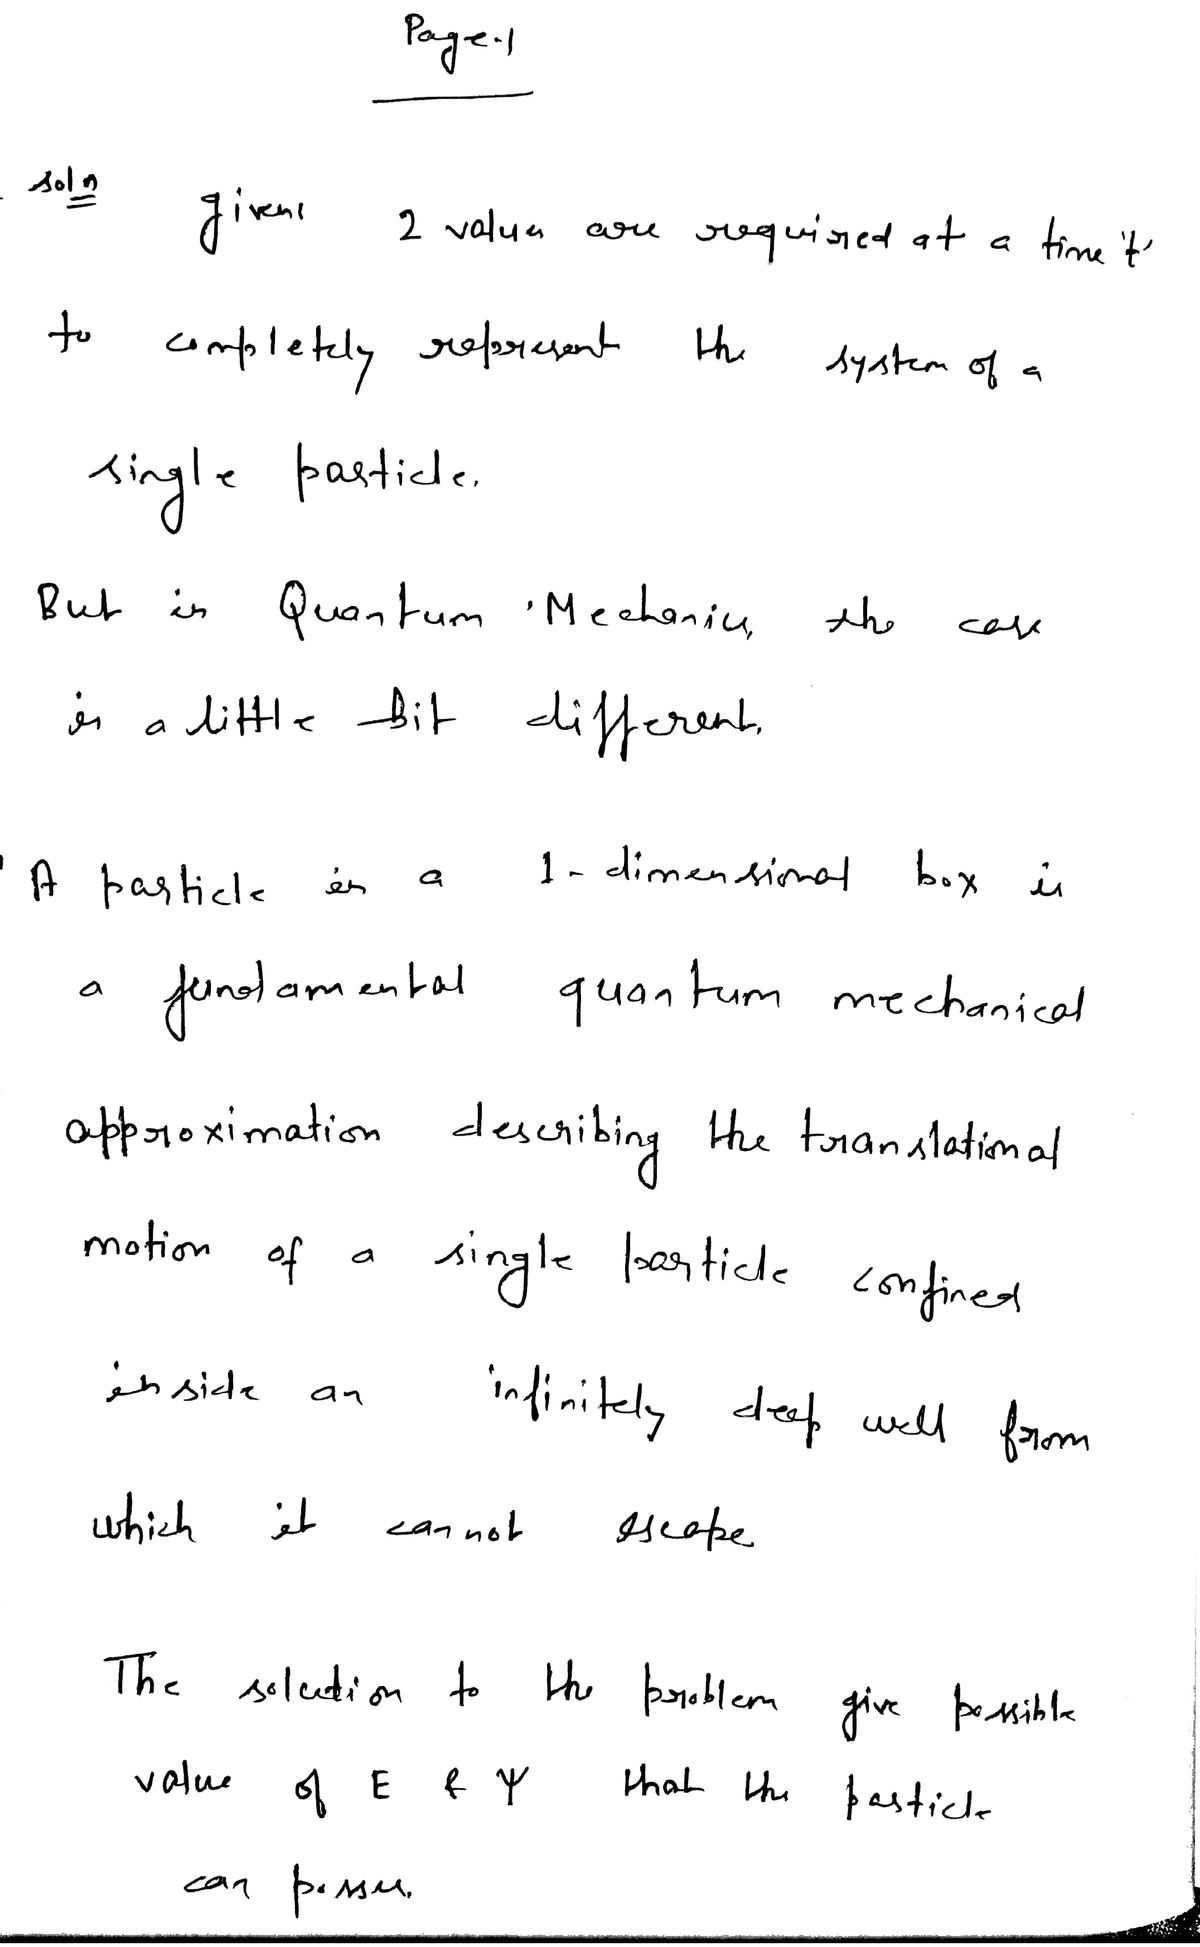 Page-1
soln
given: 2 values are required at a time 't'
to completely represent the system of a
single particle.
But in Quantum Mechanics, the case
is a little bit different.
A particle in a 1-dimensional box is
a fundamental quantum mechanical
approximation describing the translational
motion of a single particle confined
inside an infinitely deep well from
which it cannot escape
The solution to the problem give possible
value of E & Ψ that the particle
can posses.